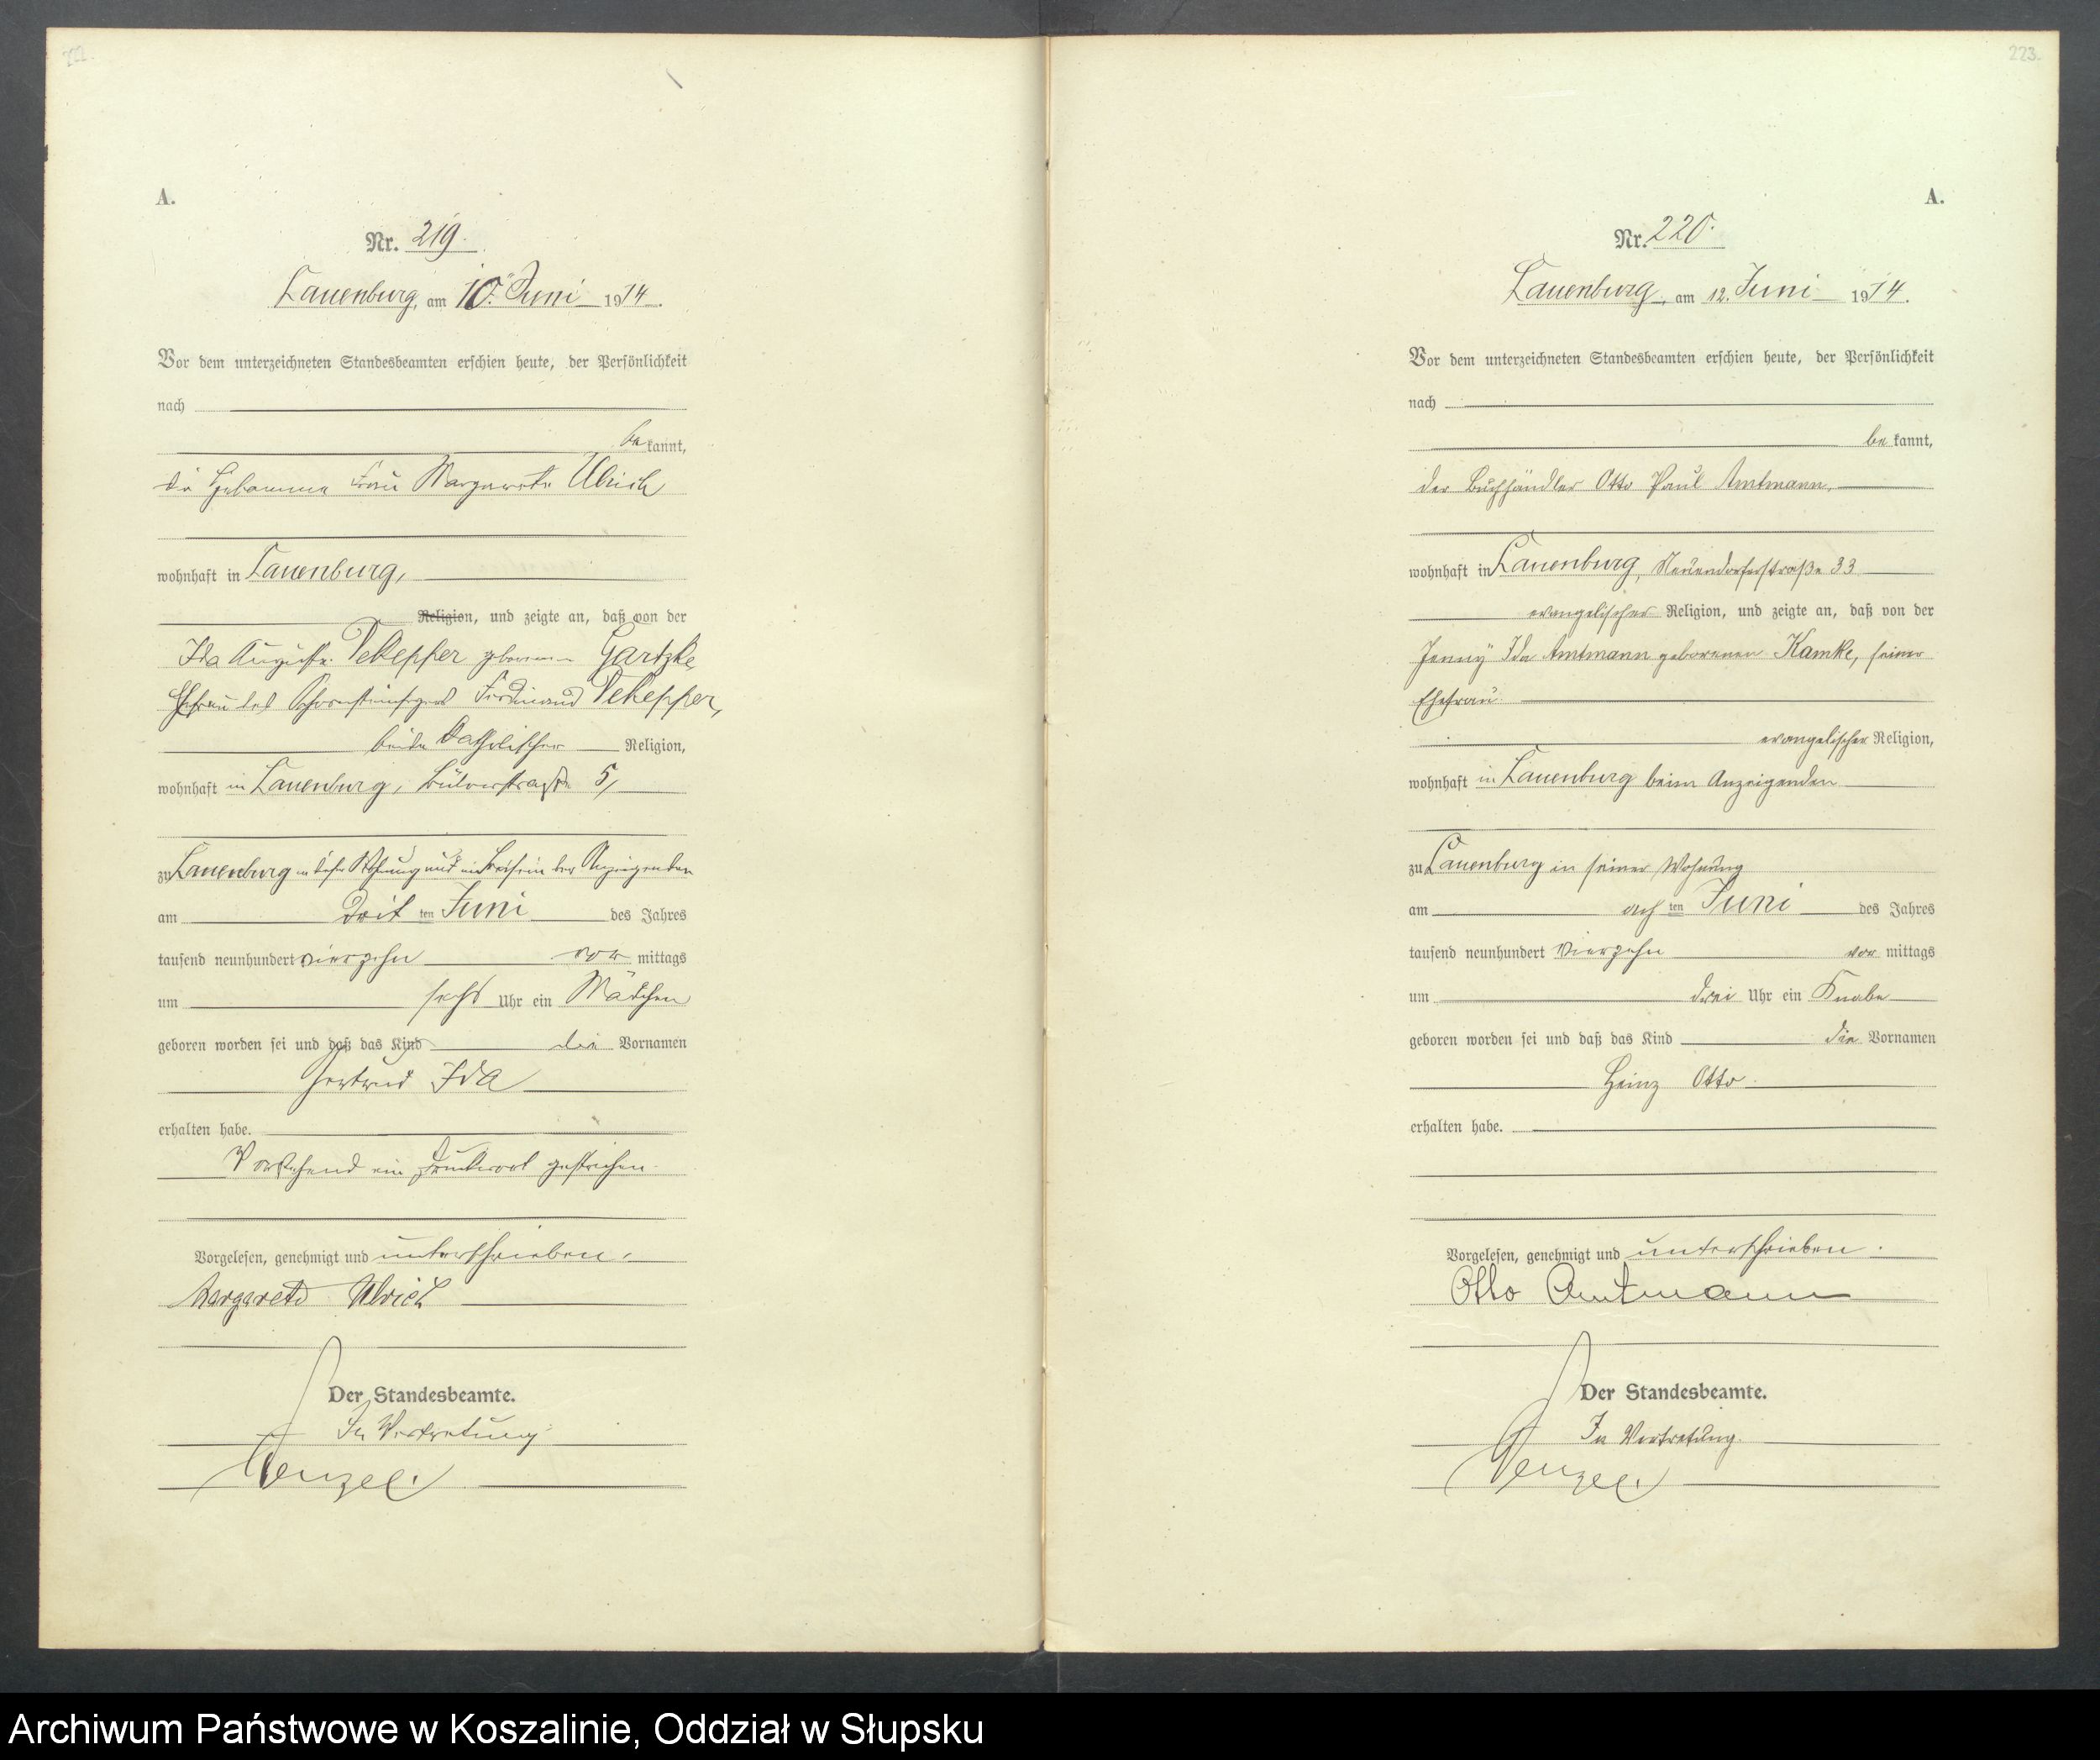 222.
A.
Nr. 219.
Lauenburg, am 10. Juni 1914.
Vor dem unterzeichneten Standesbeamten erschien heute, der Persönlichkeit
nach
bekannt,
die Hebamme Frau Margarete Ulrich
wohnhaft in Lauenburg,
Religion, und zeigte an, daß von der
Ida Auguste geborenen Gartzke
Ehefrau des Schornsteinfegers Ferdinand
beide katholischer Religion,
wohnhaft in Lauenburg, Bülowstraße 5,
zu Lauenburg in dieser Wohnung und im Beisein der Anzeigenden
am dritten Juni des Jahres
tausend neunhundert vierzehn vor mittags
um sechs Uhr ein Mädchen
geboren worden sei und daß das Kind die Vornamen
Gertrud Ida
erhalten habe.
Vorstehend ein Druckwort gestrichen.
Vorgelesen, genehmigt und unterschrieben.
Margarete Ulrich
Der Standesbeamte.
In Vertretung.
Wenzel.
223.
A.
Nr. 220.
Lauenburg, am 12. Juni 1914.
Vor dem unterzeichneten Standesbeamten erschien heute, der Persönlichkeit
nach
bekannt,
der Buchhändler Otto Paul Amtmann,
wohnhaft in Lauenburg, Neuendorferstraße 33
evangelischer Religion, und zeigte an, daß von der
Jenny Ida Amtmann geborenen Kamke, seiner
Ehefrau
evangelischer Religion,
wohnhaft in Lauenburg beim Anzeigenden
zu Lauenburg in seiner Wohnung
am achten Juni des Jahres
tausend neunhundert vierzehn vor mittags
um drei Uhr ein Knabe
geboren worden sei und daß das Kind die Vornamen
Heinz Otto
erhalten habe.
Vorgelesen, genehmigt und unterschrieben.
Otto Amtmann
Der Standesbeamte.
In Vertretung.
Wenzel.
Archiwum Państwowe w Koszalinie, Oddział w Słupsku